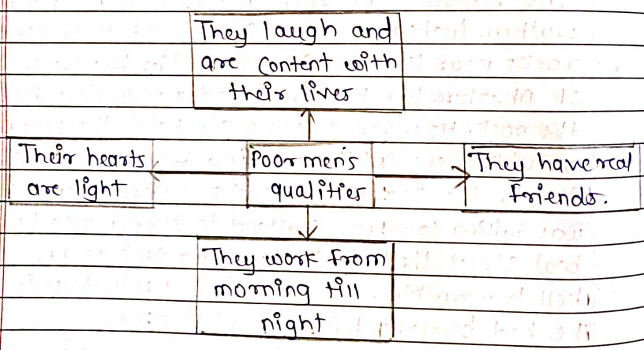 They laugh and
are content with
their lives
Their hearts
are light
Poor men's
qualities
They have real
friends.
They work from
morning till
night